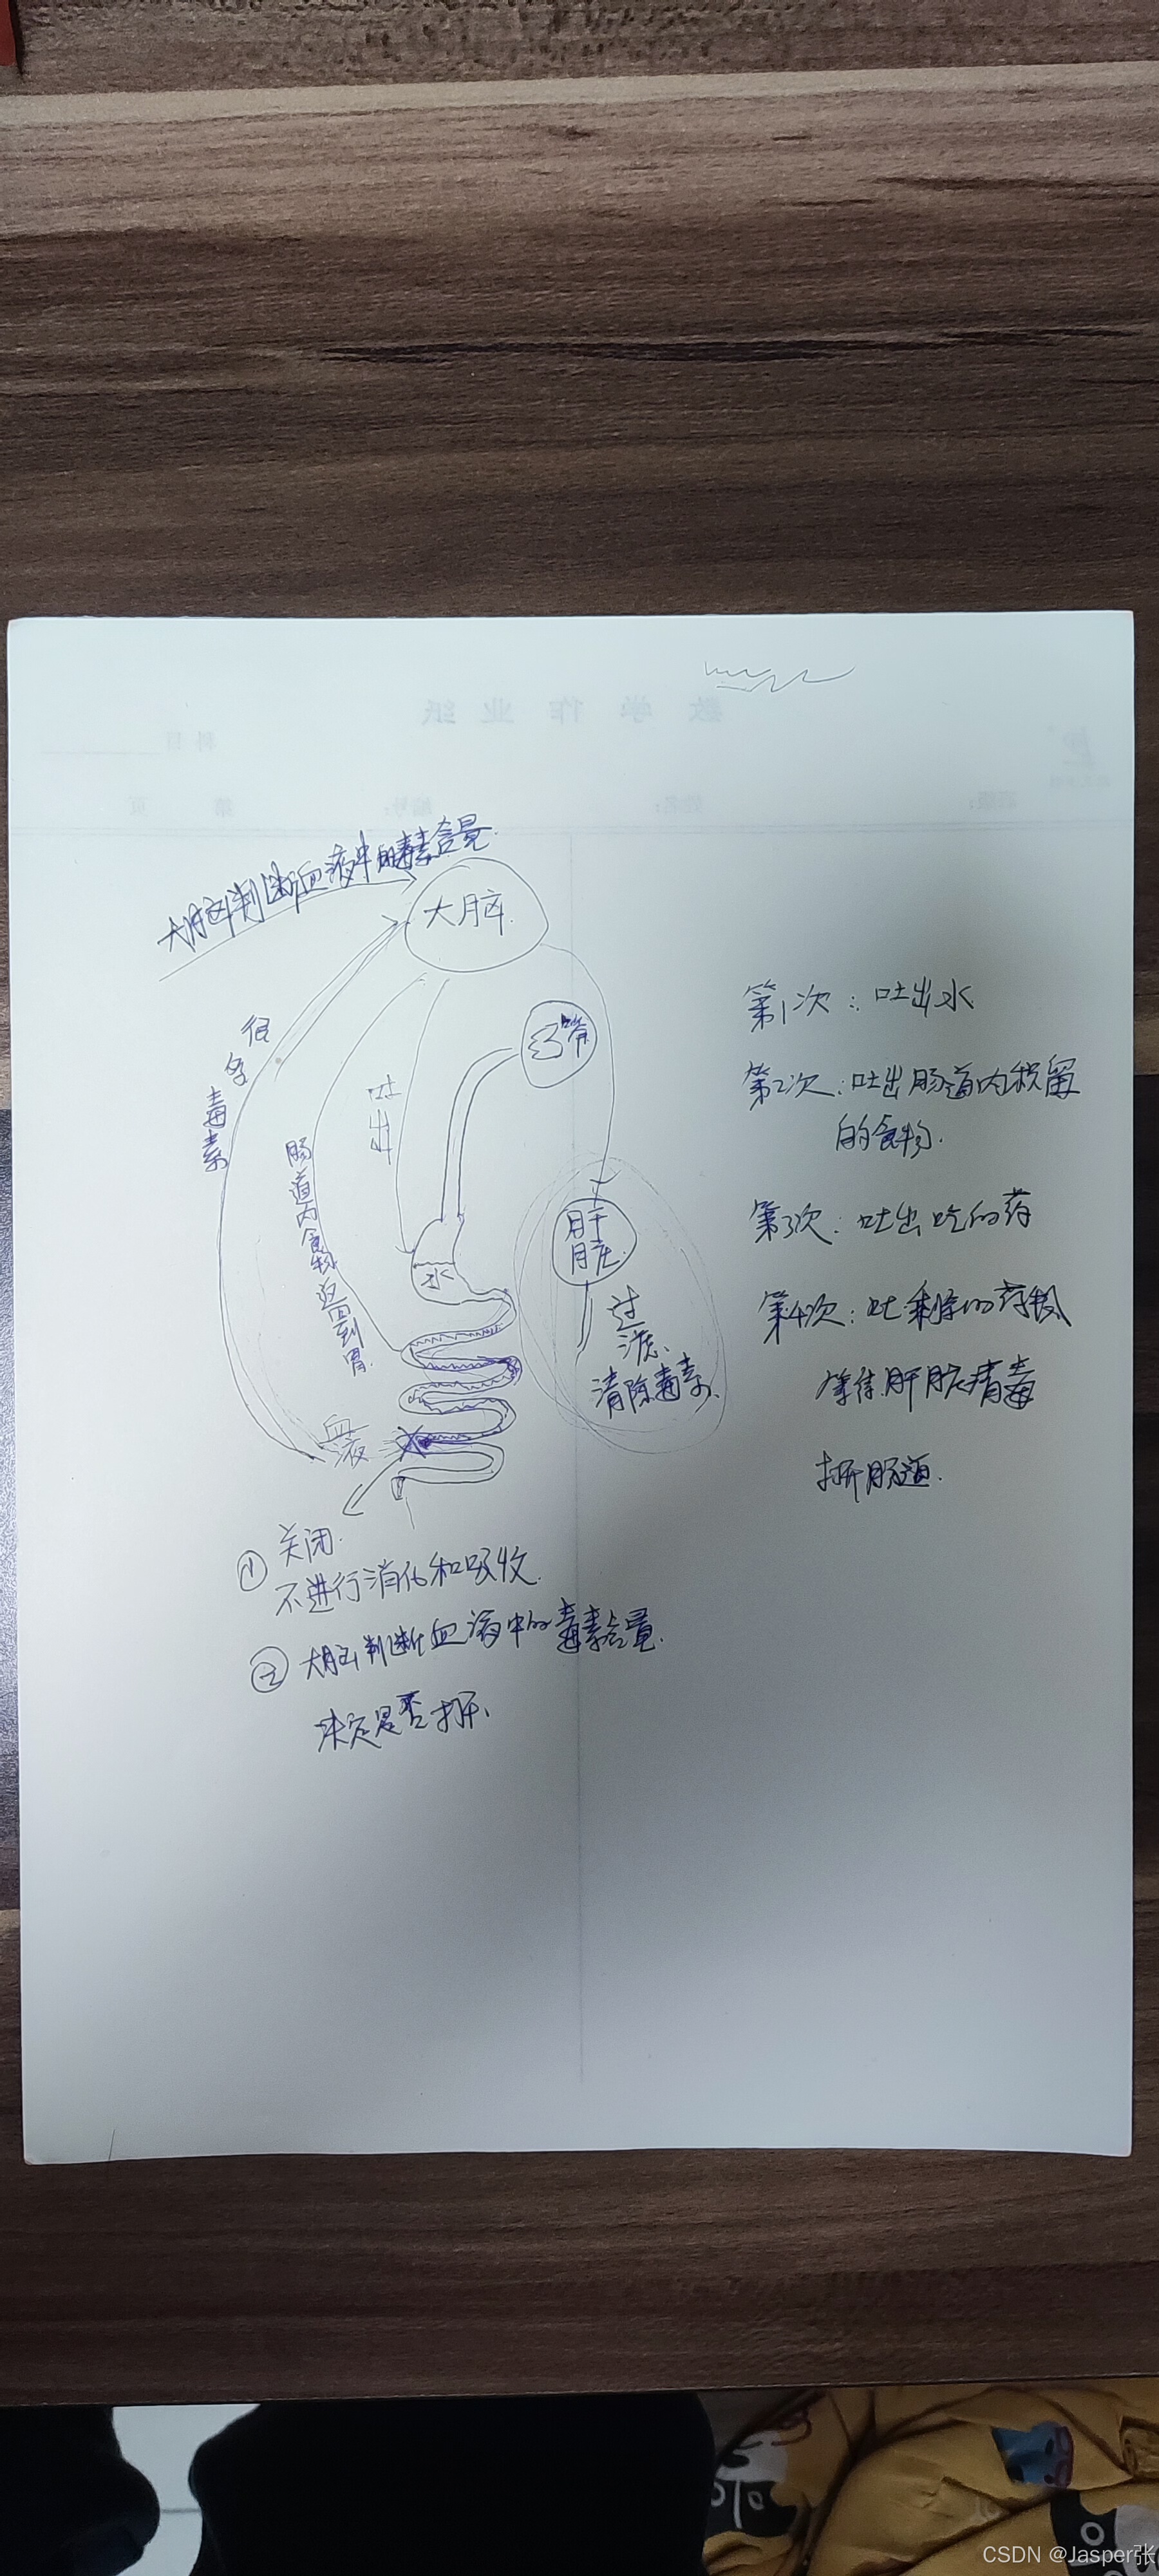 数学作业纸
科目
班级：
姓名：
编号：
第 页
大脑判断血液中的毒素含量.
大脑.
很多毒素
吐出
肠道内食物返回到胃.
胃
水
肝脏.
过滤、
清除毒素、
血液
① 关闭.
不进行消化和吸收.
② 大脑判断血液中的毒素含量.
决定是否打开.
第1次：吐出水
第2次：吐出肠道内积留
的食物.
第3次：吐出吃的药
第4次：吐剩余的药物
等待肝脏清毒
打开肠道.
CSDN @Jasper张